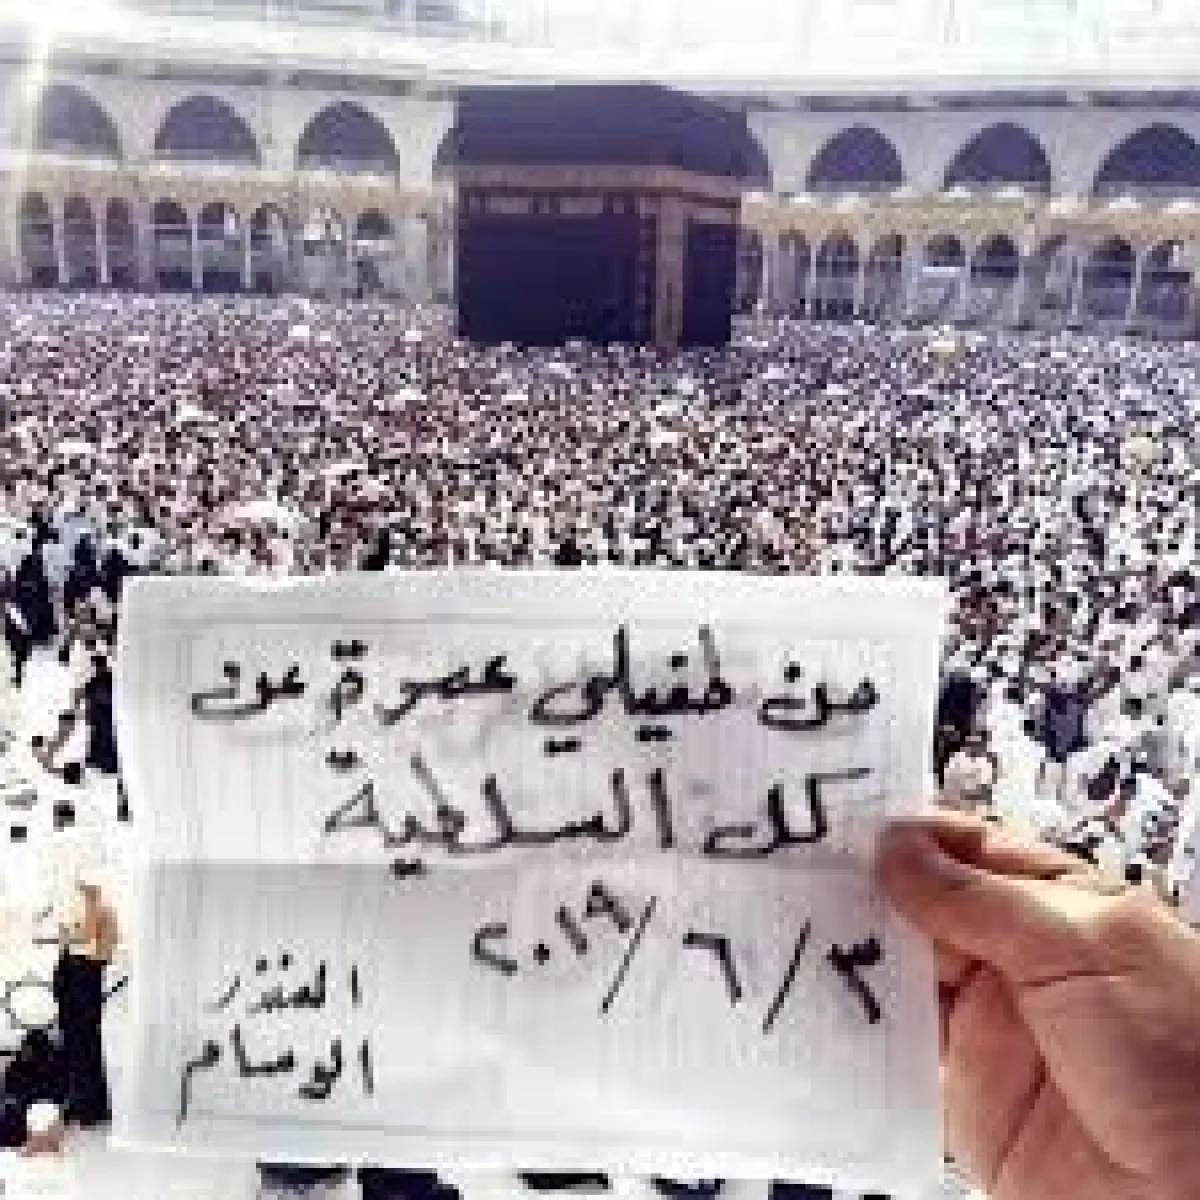 من طفيلي عمرة عن
كل السلطية
٣/٦/٢٠١٩
المنذر
الوسام